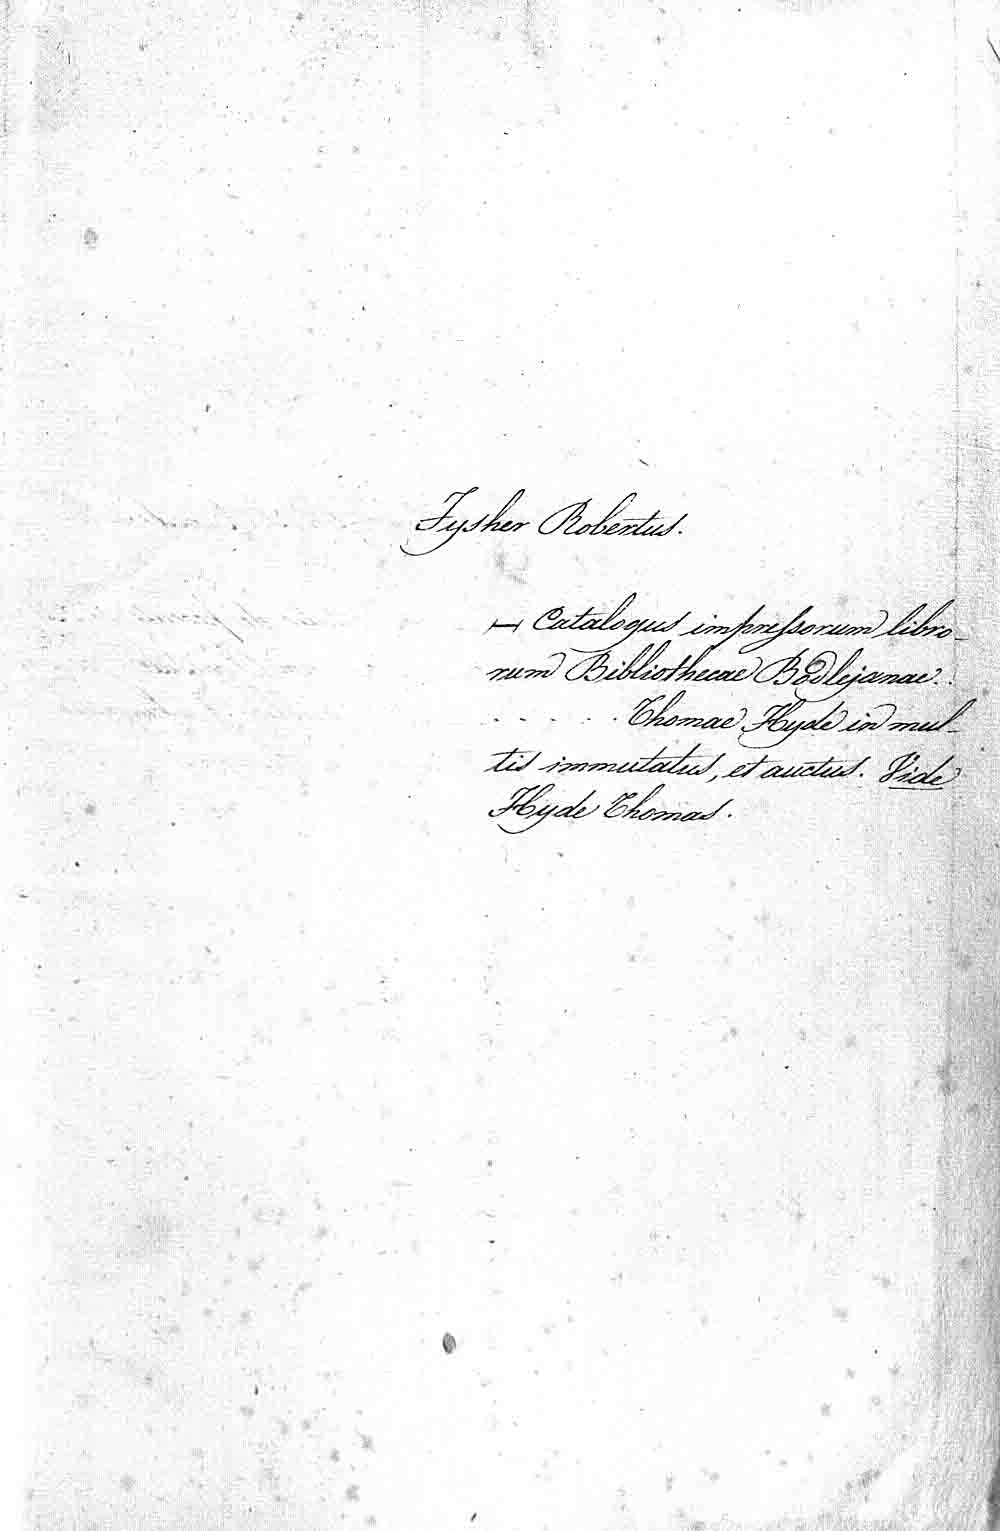 Fysher Robertus.
— Catalogus impreſsorum libro-
rum Bibliothecae Bodlejanae. .
. . . . . . Thomae Hyde in mul-
tis immutatus, et auctus. Vide
Hyde Thomas.